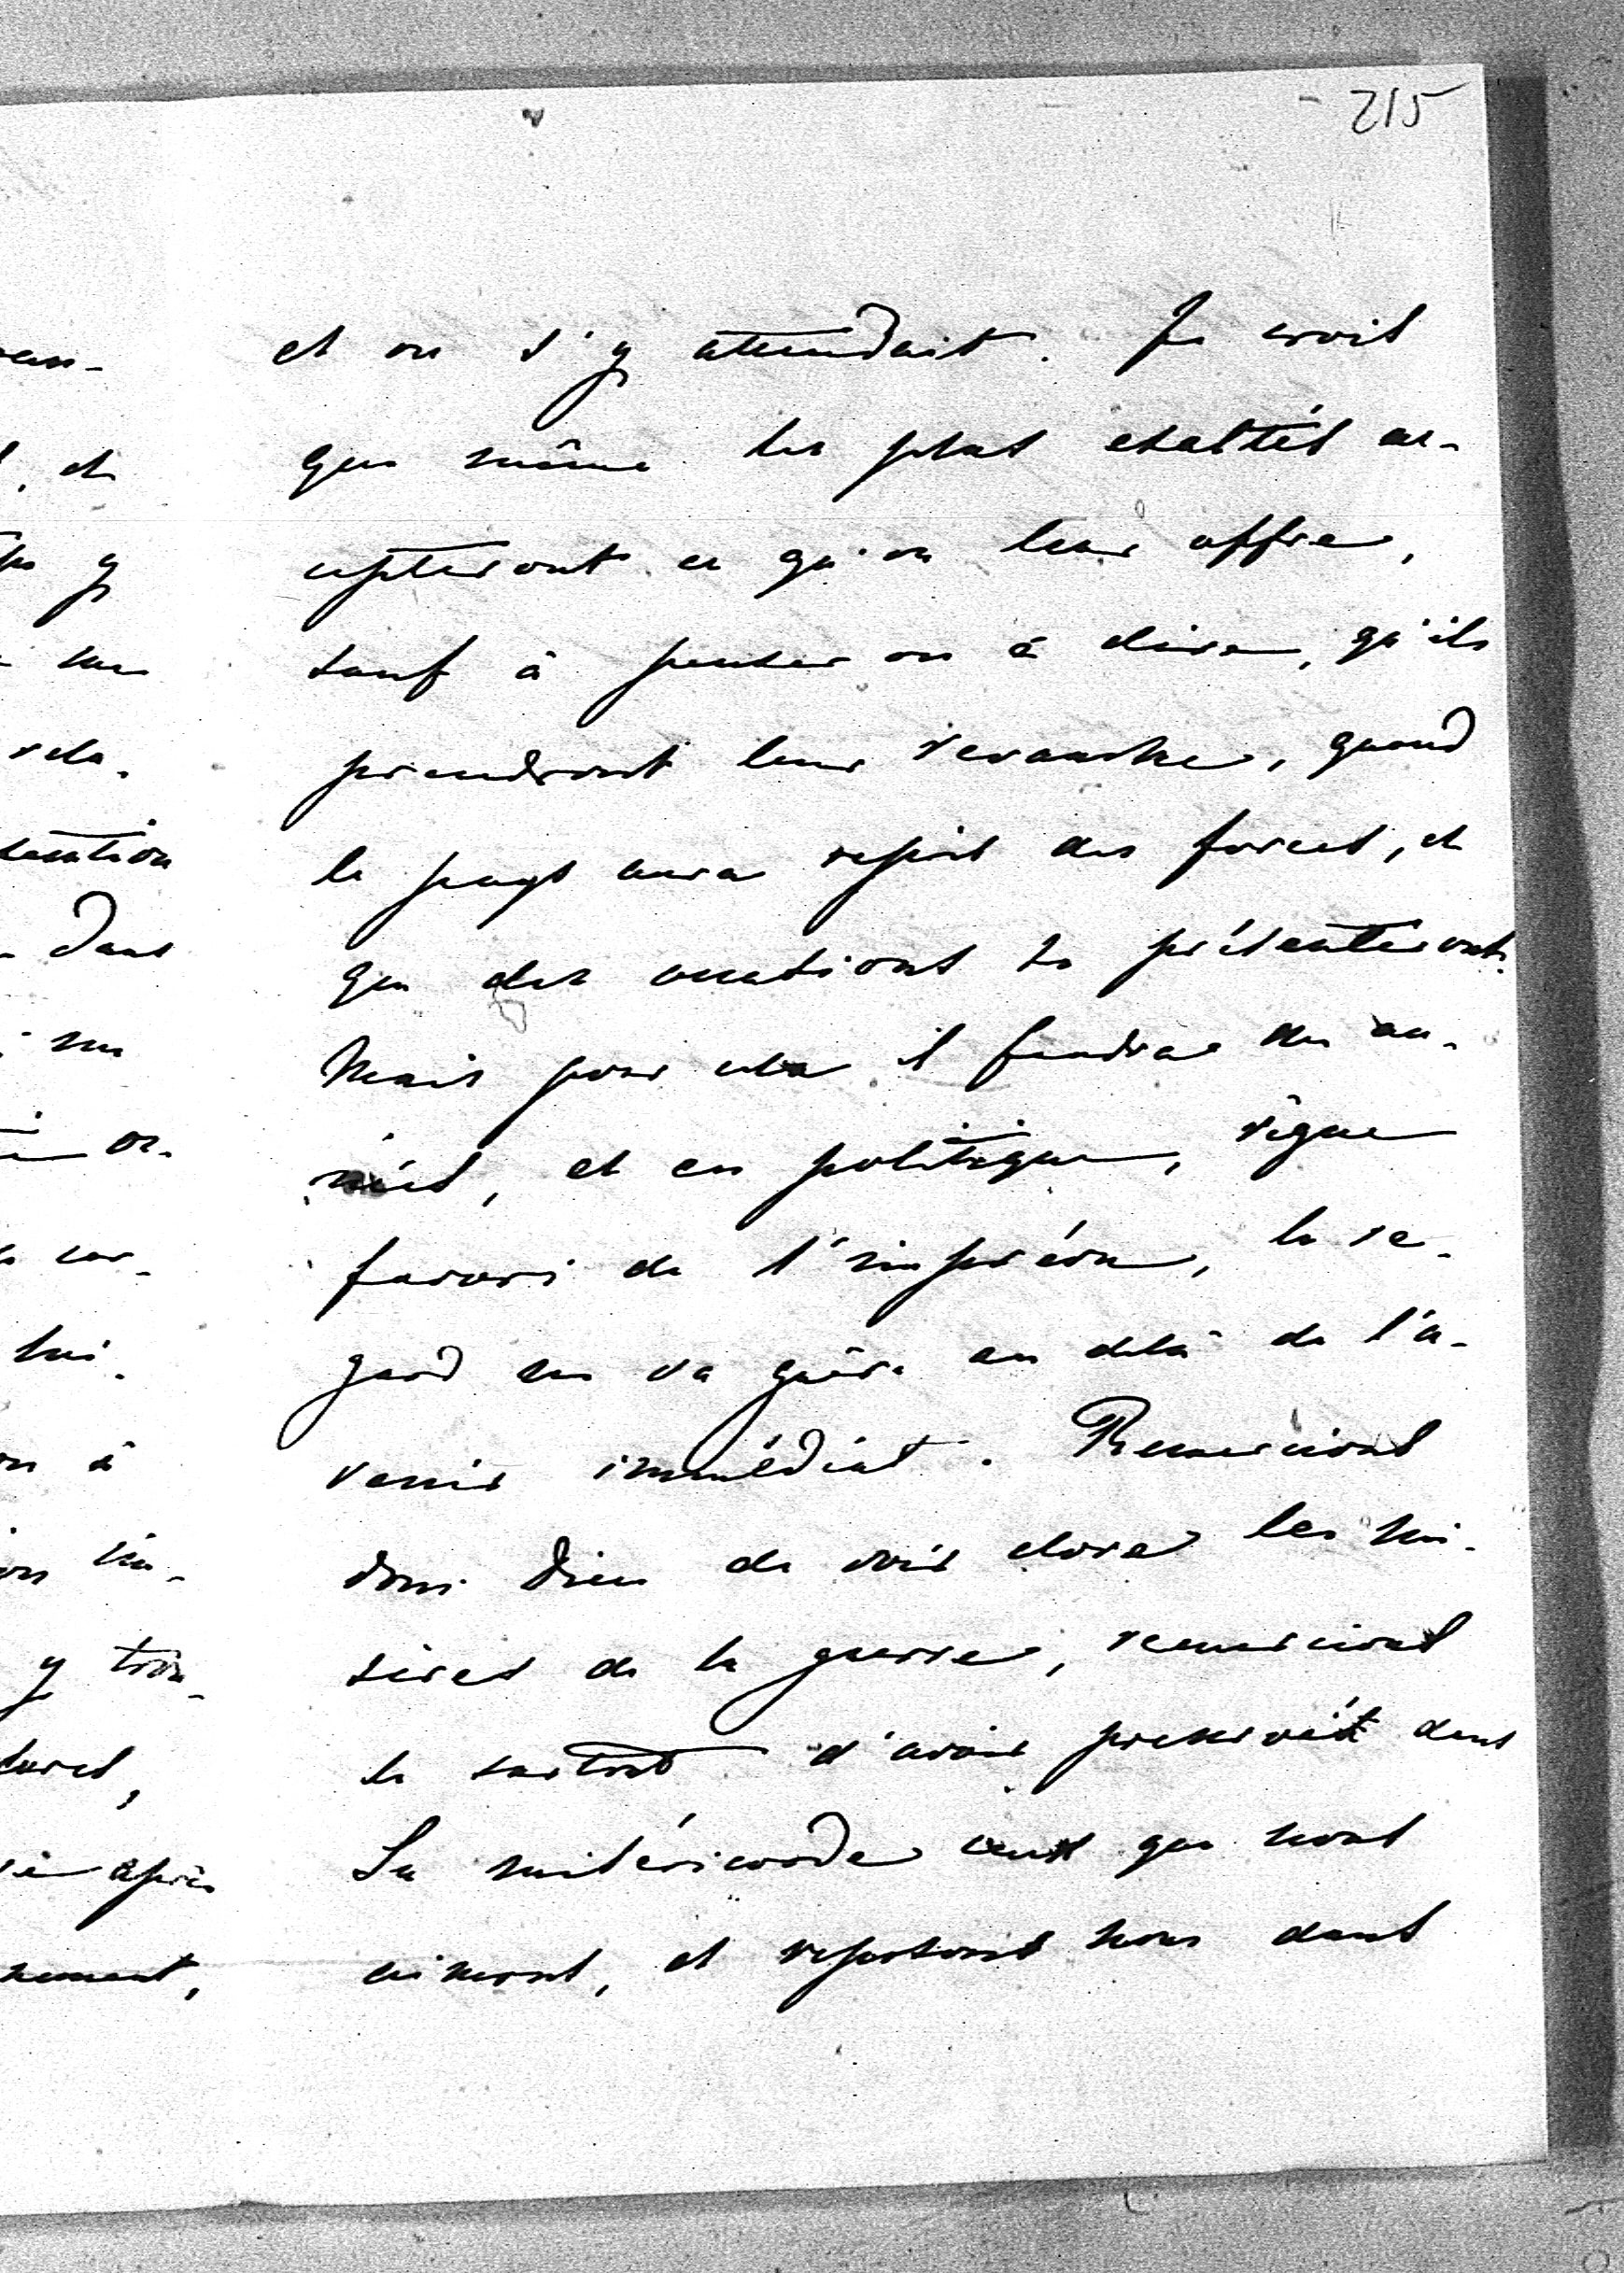 215
et on s'y attendait. Je crois
que même les plus exaltés ac-
cepteront ce qu'on leur offre,
sauf à penser ou à dire, qu'ils
prendront leur revanche, quand
le pays aura repris des forces, et
que des occasions se présenteront.
Mais pour cela il faudra des an-
nées, et en politique, règne
favori de l'imprévu, le re-
gard ne va guère au delà de l'a-
venir immédiat. Remercions
donc Dieu de voir clore les mi-
sères de la guerre, remercions
le surtout d'avoir preservé dans
Sa miséricorde ceux que nous
aimons, et reposons nous dans
, et
y
rela-
dans
or-
cor-
lui.
à
in-
y trou-
après